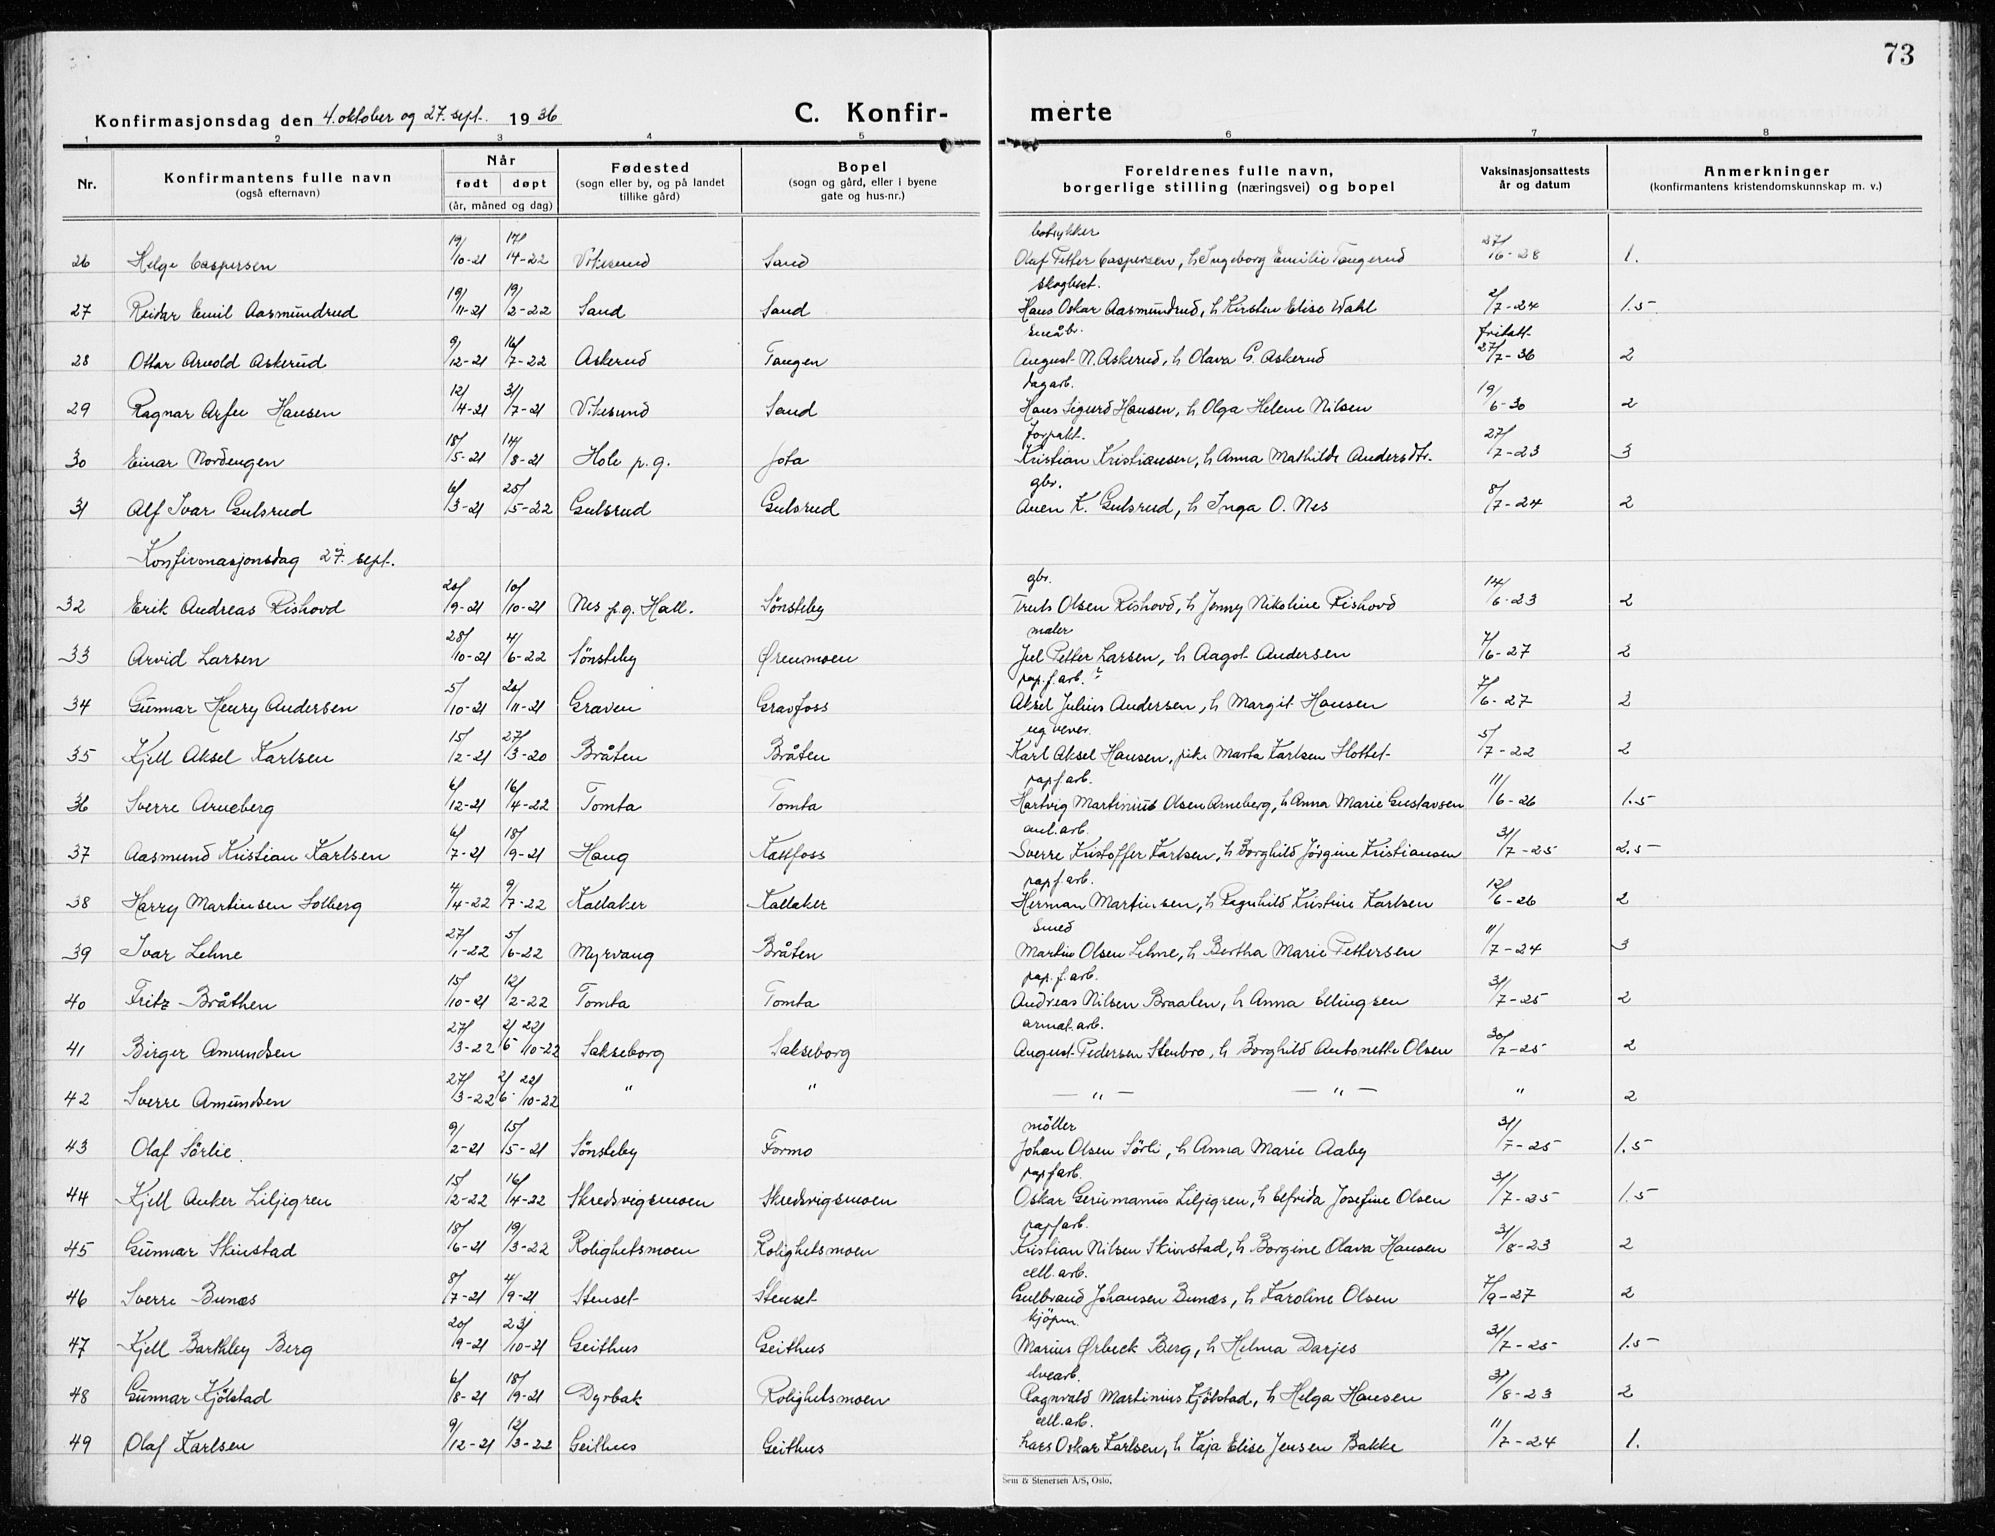 73
Konfirmasjonsdag den 4. oktober og 27. sept. 1936
C. Konfir- merte
1 2 3 4 5 6 7 8
Nr. Konfirmantens fulle navn (også efternavn) Når født døpt (år, måned og dag) Fødested (sogn eller by, og på landet tillike gård) Bopel (sogn og gård, eller i byene gate og hus-nr.) Foreldrenes fulle navn, borgerlige stilling (næringsvei) og bopel Vaksinasjonsattests år og datum Anmerkninger (konfirmantens kristendomskunnskap m. v.)
26 Helge Caspersen 19/10-21 14-22 Vikesund Sand Olaf Petter Caspersen, h Ingeborg Emilie Tangerud 27/6-28 1.
skogbest.
27 Reidar Emil Aasmundrud 19/11-21 19/2-22 Sand Sand Hans Oskar Aasmundrud, h Kirsten Elise Wahl 2/7-24 1.5
småbr. fritatt
28 Ottar Arnold Askerud 9/12-21 16/7-22 Askerud Tangen August N. Askerud, h Olava G. Askerud 27/7-36 2
dagarb.
29 Ragnar Arfeu Hansen 12/4-21 31/7-21 Vikesund Sand Hans Sigurd Hansen, h Olga Helene Nilsen 19/6-30 2
forpakt.
30 Einar Nordengen 18/5-21 14/8-21 Hole p.g. Jota Kristian Kristiansen, h Anna Mathilde Andersdtr. 27/7-23 3
gbr.
31 Alf Ivar Gulsrud 6/3-21 25/5-22 Gulsrud Gulsrud Auen K. Gulsrud, h Inga O. Nes 8/7-24 2
Konfirmasjonsdag 27. sept.
gbr.
32 Erik Andreas Rishovd 20/9-21 10/10-21 Nes p.g. Hall. Sønsteby Truls Olsen Rishovd, h Jenny Nikoline Rishovd 14/6-23 2
maler
33 Arvid Larsen 28/10-21 4/6-22 Sønsteby Ørenmoen Juel Petter Larsen, h Aagot Andersen 7/6-27 2
pap.f.arb.
34 Gunnar Henry Andersen 5/10-21 20/11-21 Graven Gravfoss Aksel Julius Andersen, h Margit Hansen 7/6-27 2
ug vever.
35 Kjell Aksel Karlsen 15/12-21 27/3-20 Bråten Bråten Karl Aksel Hansen, pike Marta Karlsen Slottet 5/7-22 2
papf.arb.
36 Sverre Arneberg 6/12-21 16/4-22 Tomta Tomta Hartvig Martinius Olsen Arneberg, h Anna Marie Gustavsen 11/6-26 1.5
anl.arb.
37 Aasmund Kristian Karlsen 6/7-21 18/9-21 Haug Kattfoss Sverre Kristoffer Karlsen, h Borghild Jörgine Kristiansen 31/7-25 2.5
papf.arb.
38 Harry Martinsen Solberg 4/4-22 9/7-22 Kallaker Kallaker Herman Martinsen, h Ragnhild Kristine Karlsen 12/6-26 2
smed
39 Ivar Lehne 27/1-22 5/6-22 Myrvang Bråten Martin Olsen Lehne, h Bertha Marie Pettersen 11/7-24 3
pap.f.arb.
40 Fritz Bråthen 15/10-21 12/2-22 Tomta Tomta Andreas Nilsen Braaten, h Anna Ellingsen 31/7-25 2
armat.arb.
41 Birger Amundsen 27/3-22 2/5 22/10-22 Sakseborg Sakseborg August Pedersen Stenbro, h Borghild Antonette Olsen 30/7-25 2
42 Sverre Amundsen 27/3-22 2/6 22/10-22 " " — " — — " — " 2
möller
43 Olaf Sörlie. 9/2-21 15/5-21 Sønsteby Formo Johan Olsen Sörli, h Anna Marie Aaby 31/7-25 1.5
papf.arb.
44 Kjell Anker Liljegren 15/2-22 16/4-22 Skredsvigsmoen Skredsvigsmoen Oskar Germanus Liljegren, h Elfrida Josefine Olsen 31/7-25 1.5
papf.arb.
45 Gunnar Skinstad 18/6-21 19/3-22 Rolighetsmoen Rolighetsmoen Kristian Nilsen Skinstad, h Borgine Olava Hansen 31/8-23 2
cell.arb.
46 Sverre Bunæs 8/7-21 4/9-21 Stenset Stenset Gulbrand Johansen Bunæs, h Karoline Olsen 7/9-27 2
kjöpm.
47 Kjell Barthley Berg 20/9-21 23/10-21 Geithus Geithus Marius Ørbeck Berg, h Helma Darjes 31/7-25 1.5
elvearb.
48 Gunnar Kjölstad 6/8-21 18/9-21 Dyrbak Rolighetsmoen Ragnvald Martinius Kjölstad, h Helga Hansen 31/8-23 2
cell.arb.
49 Olaf Karlsen 9/12-21 12/3-22 Geithus Geithus Lars Oskar Karlsen, h Kaja Elise Jensen Bakke 11/7-24 1.
Sem & Stenersen A/S, Oslo.